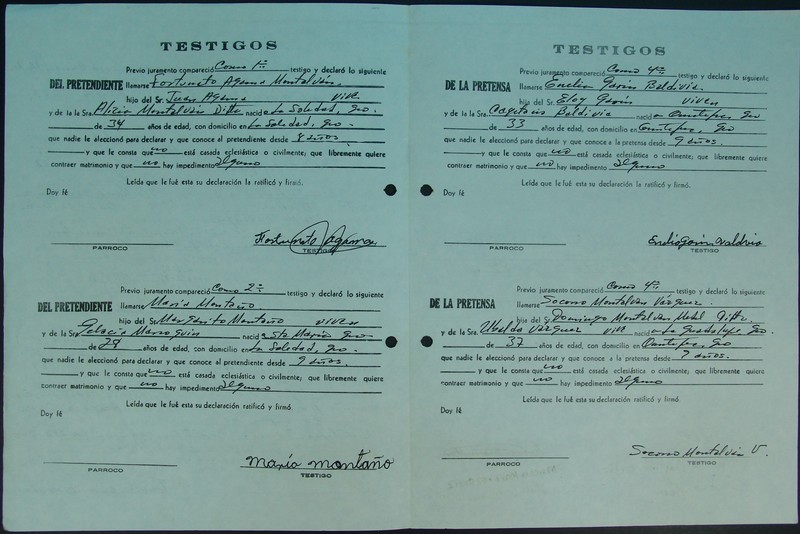 TESTIGOS
Previo juramento compareció Como 1º testigo y declaró lo siguiente
DEL PRETENDIENTE llamarse Fortunato Agama Montalván,
hijo del Sr. Juan Agama vive
y de la Sra. Alicia Montalván nació en La Soledad, Gro.
de 34 años de edad, con domicilio en La Soledad, Gro.
que nadie le aleccionó para declarar y que conoce al pretendiente desde 4 años.
y que le consta que no está casado eclesiástica o civilmente; que libremente quiere
contraer matrimonio y que no hay impedimento alguno
Leída que le fué esta su declaración la ratificó y firmó.
Doy fé
Fortunato Agama
PARROCO
TESTIGO
Previo juramento compareció Como 2º testigo y declaró lo siguiente
DEL PRETENDIENTE llamarse María Montaño
hijo del Sr. Margarito Montaño viven
y de la Sra. Marroquín nació en Sta. María Gro
de 28 años de edad, con domicilio en La Soledad, Gro.
que nadie le aleccionó para declarar y que conoce al pretendiente desde 9 años.
y que le consta que no está casada eclesiástica o civilmente; que libremente quiere
contraer matrimonio y que no hay impedimento alguno
Leída que le fué esta su declaración ratificó y firmó
Doy fé
María Montaño
PARROCO
TESTIGO
TESTIGOS
Previo juramento compareció Como testigo y declaró lo siguiente
DE LA PRETENSA llamarse Emelia
hijo del Sr. Eloy viven
y de la Sra. nació en Gro
de 33 años de edad, con domicilio en Gro
que nadie le aleccionó para declarar y que conoce a la pretensa desde 9 años.
y que le consta que no está casada eclesiástica o civilmente; que libremente quiere
contraer matrimonio y que no hay impedimento alguno
Leída que le fué esta su declaración la ratificó y firmó.
Doy fé
PARROCO
TESTIGO
Previo juramento compareció Como 4º testigo y declaró lo siguiente
DE LA PRETENSA llamarse Socorro Montalván Vázquez.
hijo del Sr. Domingo Montalván
y de la Sra. Ubalda Vázquez vive nació en La Guadalupe, Gro.
de 37 años de edad, con domicilio en Gro
que nadie le aleccionó para declarar y que conoce a la pretensa desde 7 años.
y que le consta que no está casada eclesiástica o civilmente; que libremente quiere
contraer matrimonio y que no hay impedimento alguno
Leída que le fué esta su declaración ratificó y firmó.
Doy fé
Socorro Montalván V.
PARROCO
TESTIGO